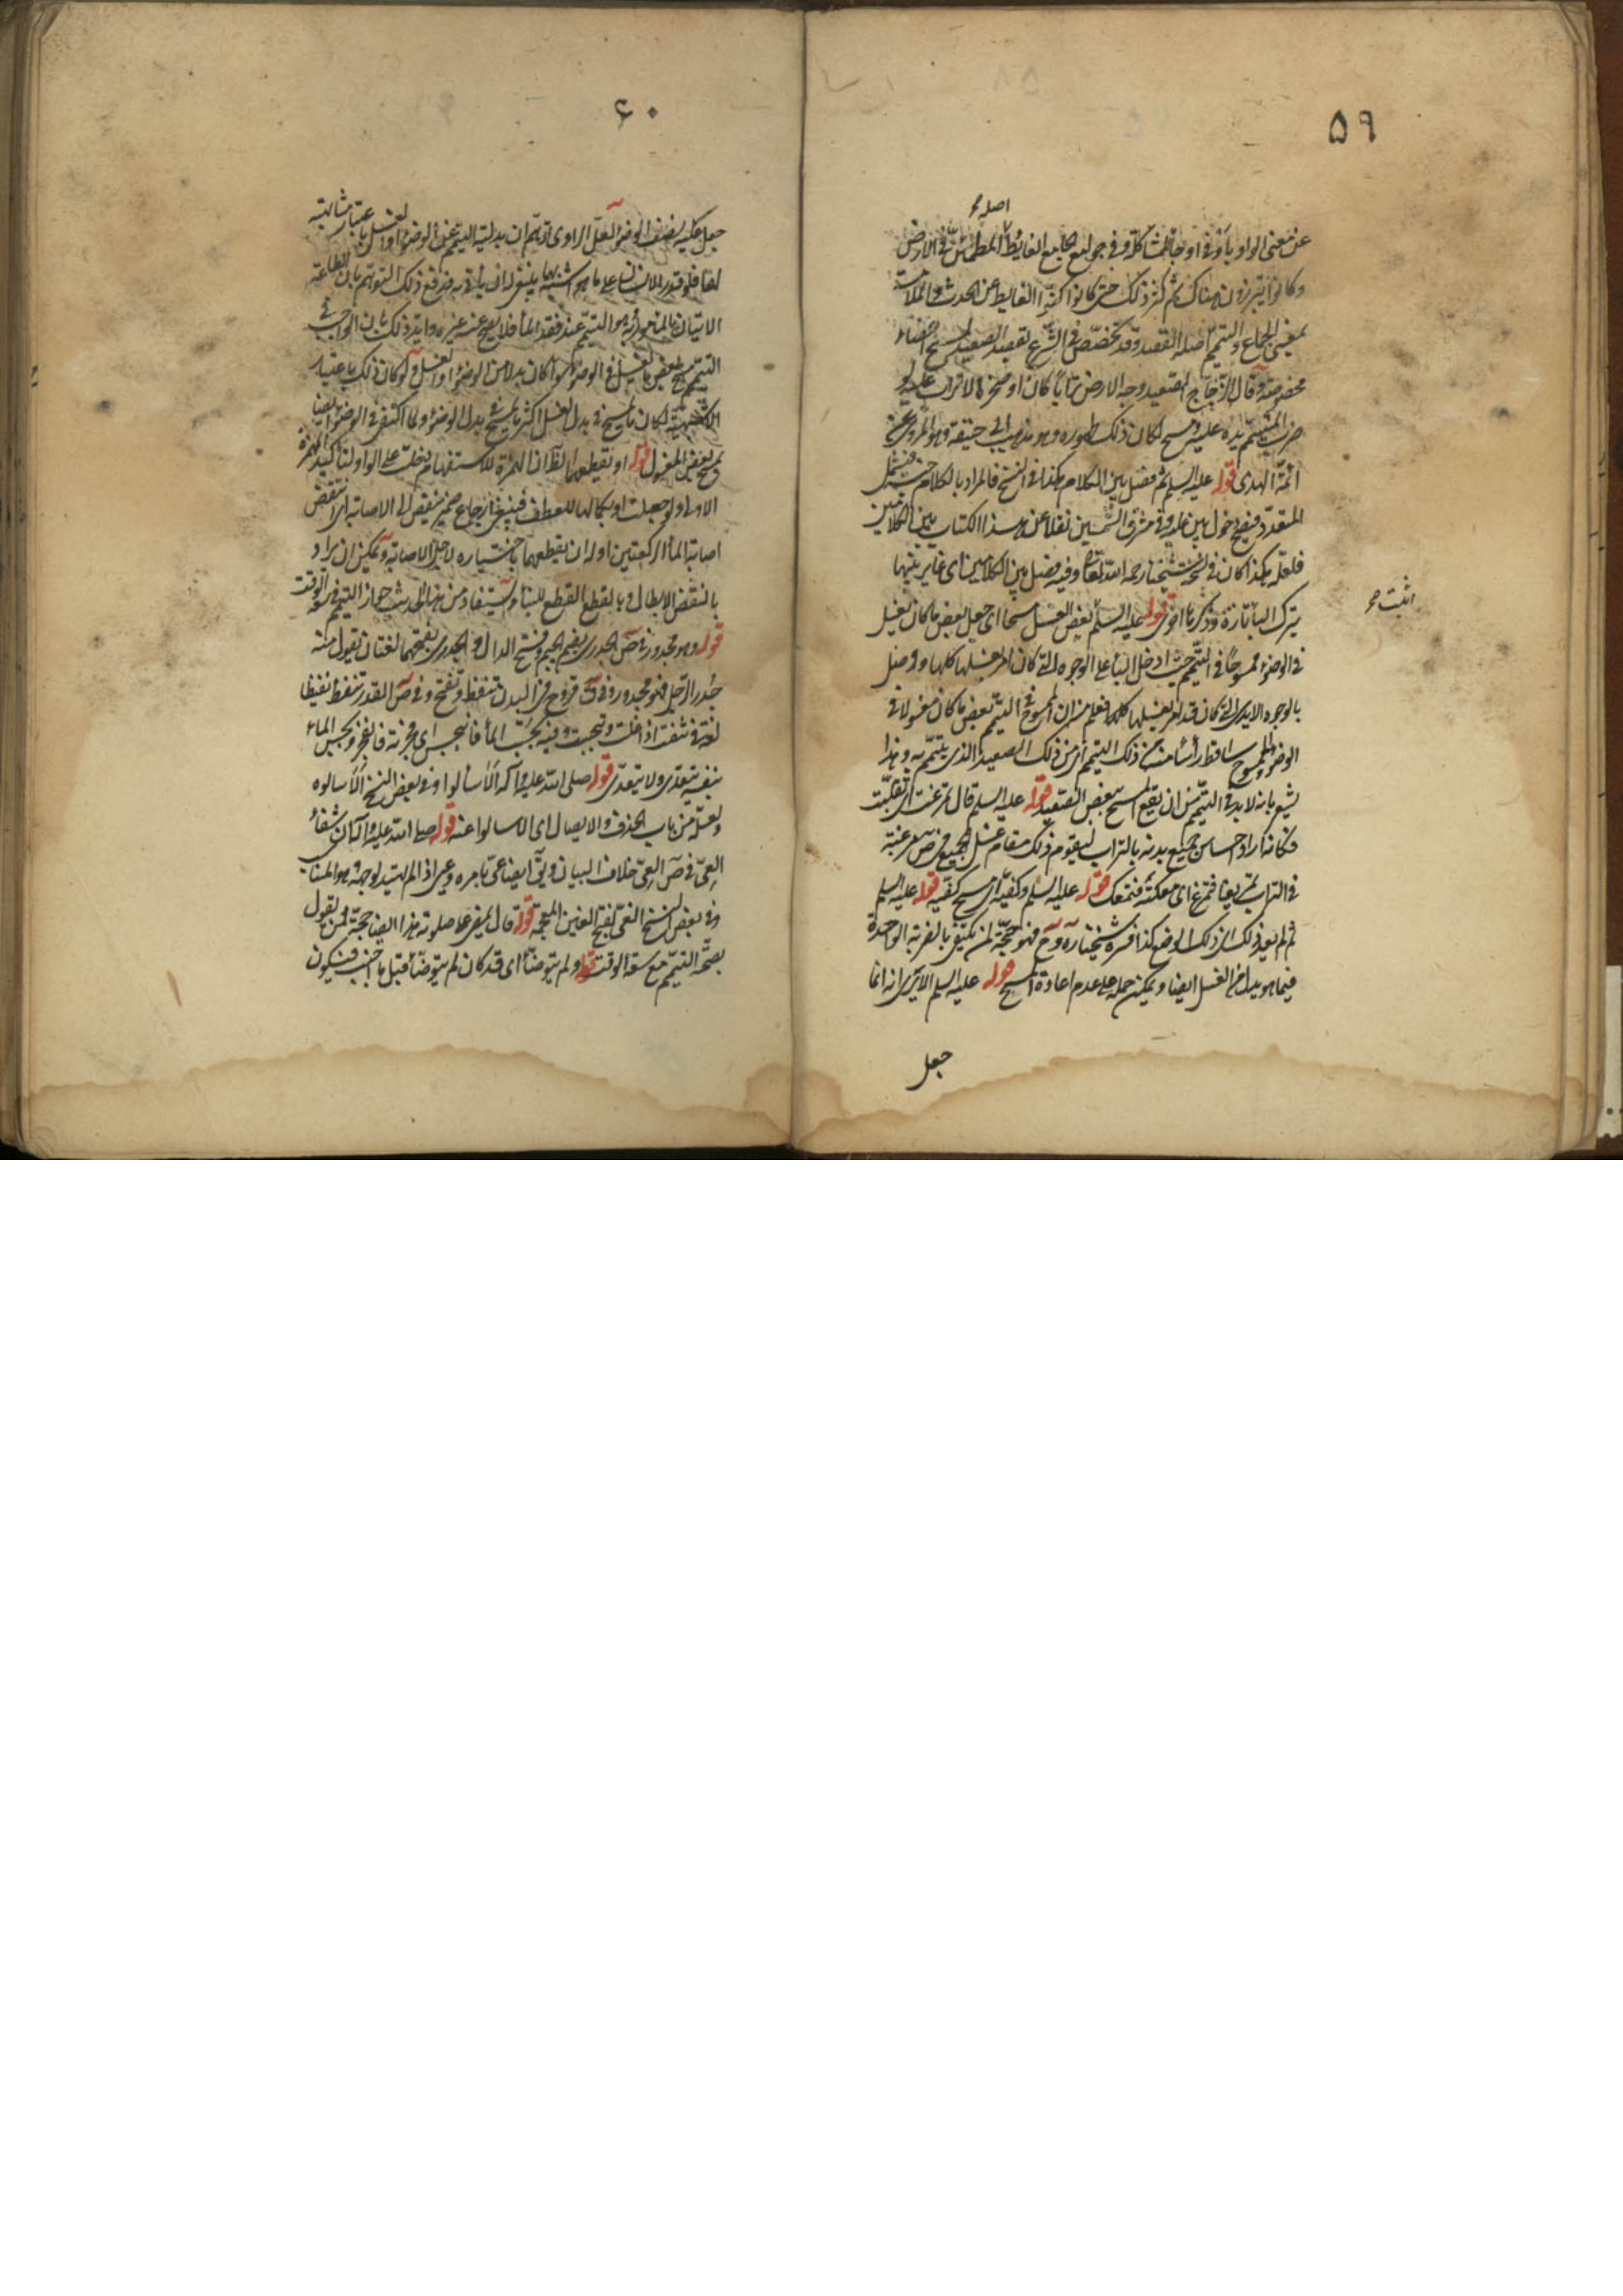 ٥٩
اصله
عن معنى الواو يأوفى او جاء لمشاكلة وفي جوامع الجامع الغائط المطمئن في الارض
وكانوا يتبرزون هناك ثم كثر ذلك حتى كانوا كنوا الغايط عن الحدث والملامسة
بمعنى الجماع والتيمم اصله القصد وقد تخصص في الشرع لقصد الصعيد لمسح اعضاء
مخصوصة وقال الزجاج الصعيد وجه الارض ترابا كان او صخرة لا تراب عليه لو
ضرب المتيمم يده عليه ومسح لكان ذلك طهوره وهو مذهب ابي حنيفة وهو المروي عن
ائمة الهدى قوله عليه السلم ثم فصل بين الكلام هكذا في النسخ فالمراد بالكلام جنسه فيشمل
المتعدد فيصح دخول بين عليه وفي مشرق الشمسين نقلا عن هذا الكتاب بين الكلامين
فلعله هكذا كان في نسخة شيخنا رحمه الله تعالى وفيه فصل بين الكلامين اى غاير بينهما
اثبت
بترك الباء تارة وذكرها اخرى قوله عليه السلم بعض الغسل مسحا اى جعل بعض ما كان يغسل
في الوضوء ممسوحا في التيمم حيث ادخل الباء على الوجوه التي كان امر بغسلها كلها ووصل
بالوجوه الايدى التي كان قد امر بغسلها كلها فعلم من ان الممسوح في التيمم بعض ما كان مغسولا في
الوضوء والممسوح ساقط رأسا منه من ذلك التيمم اى من ذلك الصعيد الذي يتيمم به وهذا
يشعر بانه لابد في التيمم من ان يقع المسح ببعض الصعيد قوله عليه السلم قال تمرغت اى تقلبت
فكانه اراد احساس جميع بدنه بالتراب ليقوم ذلك مقام غسل الجميع في ص مرغته
في التراب تمريغا فتمرغ اى معكته فتمعك قوله عليه السلم وكفيه اى مسح كفيه قوله عليه السلم
ثم لم يعد ذلك اى ذلك الوضع كذا فسره شيخنا ره وح فهو حجة لمن يكتفي بالضربة الواحدة
فيما هو بدل من الغسل ايضا ويمكن حمله على عدم اعادة المسح قوله عليه السلم الا يرى انه انما
جعل
٦٠
جعل عليه نصف الوضوء لعل الراوى توهم ان بدلية التيمم عن الوضوء او الغسل باعتبار مشابهته
لهما فلو قدر الانسان على ما هو اشبه بهما ينبغي ان يأتي به فدفع ذلك التوهم بان الطاعة
الاتيان بالمأمور به وهو التيمم عند فقد الماء فلا يصح عنه غيره وايد ذلك بان الواجب في
التيمم مسح بعض ما يغسل في الوضوء سواء كان بدلا من الوضوء او الغسل ولو كان ذلك باعتبار
الاشبهية لكان ما يمسح في بدل الغسل اكثر ما يمسح في بدل الوضوء ولما اكتفى في الوضوء ايضا
بمسح بعض المغسول قوله او يقطعهما الظ ان الهمزة للاستفهام دخلت على الواو لتأكيد الهمزة
الاولى ولو جعلت او بكمالها للعطف فينبغي ارجاع ضمير ينقض الى الاصابة اى انتقض
اصابة الماء الركعتين او له ان يقطعهما باختياره لاجل الاصابة ويمكن ان يراد
بالنقض الابطال وبالقطع القطع للبناء ويستفاد من هذا الحديث جواز التيمم في سعة الوقت
قوله وهو مجدور في ص الجدري بضم الجيم وفتح الدال والجدري بفتحهما لغتان تقول منه
جدر الرجل فهو مجدور وفي ق قروح في البدن تنفط وتقيح وفي ص القدر تنفط نفيطا
لغة في تنفت اذا غلت وتبجست وفيه بجست الماء فانبجس اى فجرته فانفجر وبجس الماء
بنفسه يتعدى ولا يتعدى قوله صلى الله عليه وآله الا سألوا وفي بعض النسخ الا سالوه
ولعله من باب الحذف والايصال اى الا سالوا عنه قوله صلى الله عليه وآله ان شفاء
العي في ص العي خلاف البيان وفي ايضا عي بامره وعيي اذا لم يهتد لوجهه وهو المناسب
وفي بعض النسخ الغي بفتح الغين المعجمة قوله قال يمضي على صلوته هذا ايضا حجة لمن يقول
بصحة التيمم مع سعة الوقت قوله ولم يتوضأ اى قد كان لم يتوضأ قبل ما اجنب فيكون